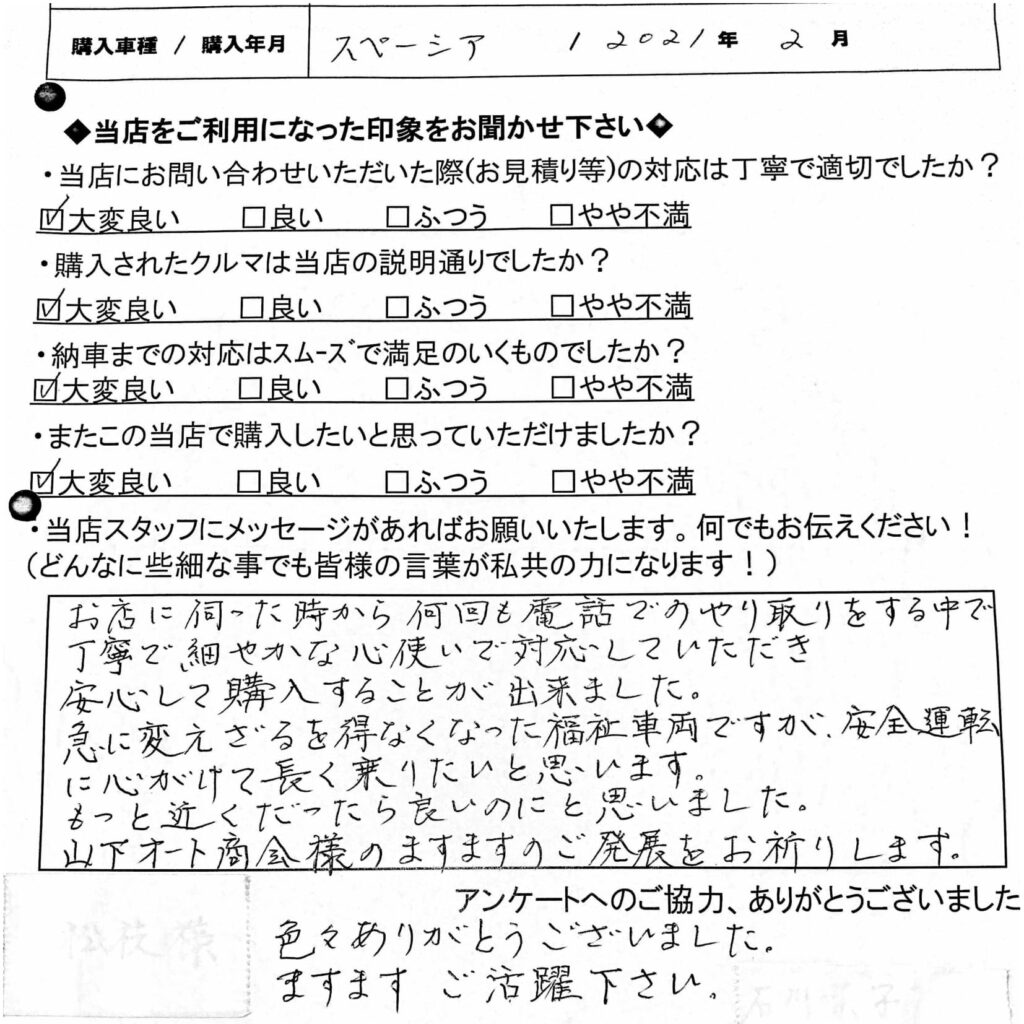 購入車種 / 購入年月 スペーシア / 2021年 2月
◆当店をご利用になった印象をお聞かせ下さい◆
・当店にお問い合わせいただいた際(お見積り等)の対応は丁寧で適切でしたか？
☑大変良い □良い □ふつう □やや不満
・購入されたクルマは当店の説明通りでしたか？
☑大変良い □良い □ふつう □やや不満
・納車までの対応はスムーズで満足のいくものでしたか？
☑大変良い □良い □ふつう □やや不満
・またこの当店で購入したいと思っていただけましたか？
☑大変良い □良い □ふつう □やや不満
・当店スタッフにメッセージがあればお願いいたします。何でもお伝えください！
（どんなに些細な事でも皆様の言葉が私共の力になります！）
お店に伺った時から何回も電話でのやり取りをする中で
丁寧で、細やかな心使いで対応していただき
安心して購入することが出来ました。
急に変えざるを得なくなった福祉車両ですが、安全運転
に心がけて長く乗りたいと思います。
もっと近くだったら良いのにと思いました。
山下オート商会様のますますのご発展をお祈りします。
アンケートへのご協力、ありがとうございました
色々ありがとうございました。
ますます ご活躍下さい。